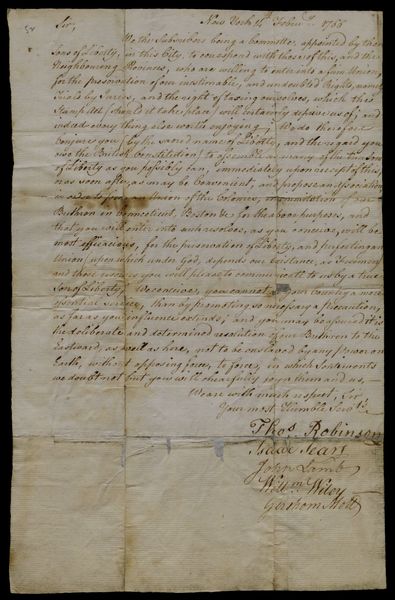 Sir,
New York 14th Febury 1766
We the Subscribers being a Committee, appointed by the
Sons of Liberty, in this City, to correspond with those of this, and the
Neighbouring Provinces, who are willing to enter into a firm Union,
for the preservation of our inestimable, and undoubted Rights, namely
Trials by Juries, and the right of taxing ourselves, which this
Stamp Act (should it take place) will certainly deprive us of, and
indeed every thing else worth enjoying. We do therefore
conjure you (by the sacred name of Liberty, and the regard you
owe the British Constitution) to assemble as many of the true Sons
of Liberty as you possibly can, immediately upon receipt of this,
or as soon after, as may be convenient, and propose an association
in order to form an Union of the Colonies, in imitation of our
Brethren in Connecticut, Boston &c for the above purposes, and
that you will enter into such resolves, as you conceive, will be
most efficacious, for the preservation of Liberty, and perfecting an
Union (upon which under God, depends our Existance, as Freemen)
and those resolves you will please to communicate to us by a true
Son of Liberty. We conceive, you cannot do your country a more
essential service, than by promoting so necessary a precaution,
as far as your influence extends, and you may be assured it is
the deliberate and determined resolution of our Brethren to the
Eastward, as well as here, not to be enslaved by any Power on
Earth, without opposing force, to force, in which Sentiments
we doubt not but you will chearfully join them and us,
We are with much respect, Sir
Your most Humble Servts.
Thos. Robinson
Isaac Sears
John Lamb
Willm. Wiley
Gershom Mott